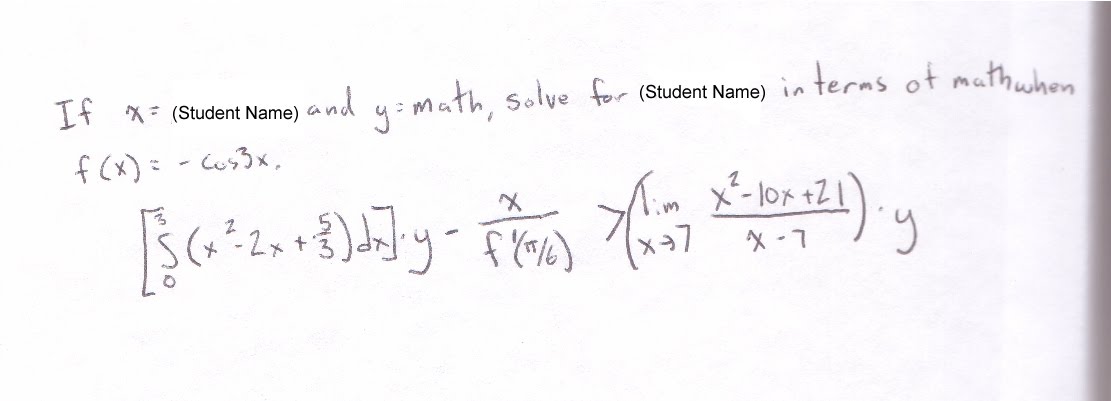 If x= (Student Name) and y=math, solve for (Student Name) in terms of math when
f(x) = -cos3x.
[∫₀³(x²-2x+5/3)dx]·y - x/f'(π/6) > (lim x→7 x²-10x+21/x-7)·y